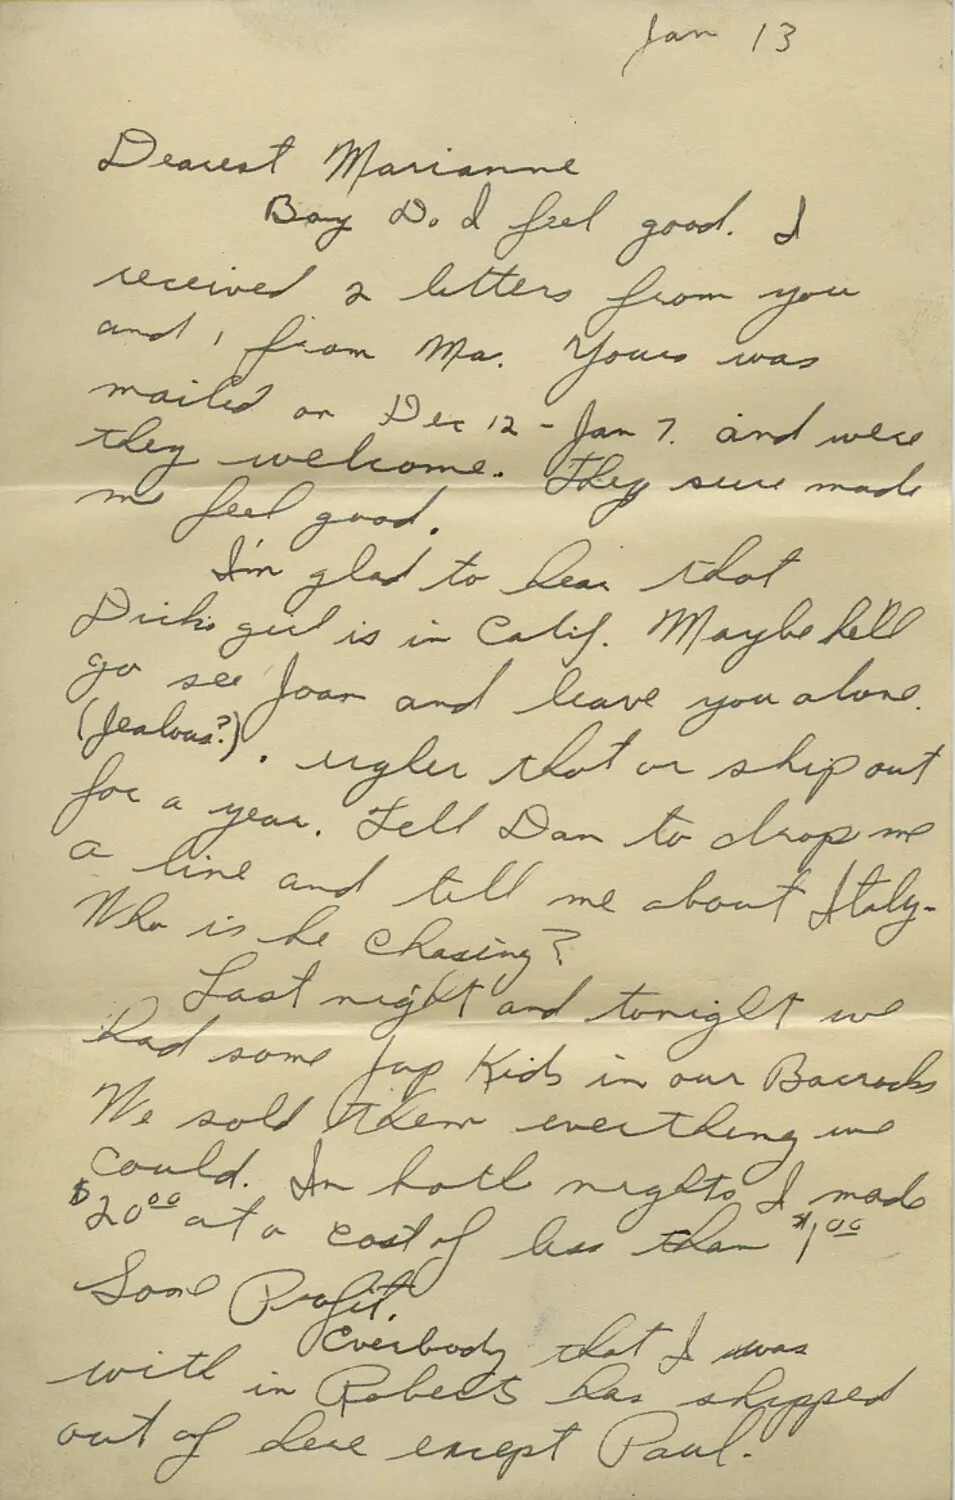 Jan 13
Dearest Marianne
Boy Do I feel good. I
received 2 letters from you
and 1 from Ma. Yours was
mailed on Dec 12 - Jan 7. and were
they welcome. They sure made
me feel good.
I'm glad to hear that
Dicks girl is in Calif. Maybe he'll
go see Joan and leave you alone.
(Jealous?). that or ship out
for a year. Tell Dan to drop me
a line and tell me about Italy-
Who is he chasing?
Last night and tonight we
had some Jap Kids in our Barracks
We sold them everthing we
could. In both nights I made
$20.00 at a cost of less than $1.00
Some Profit.
Everbody that I was
with in Roberts has shipped
out of here except Paul.